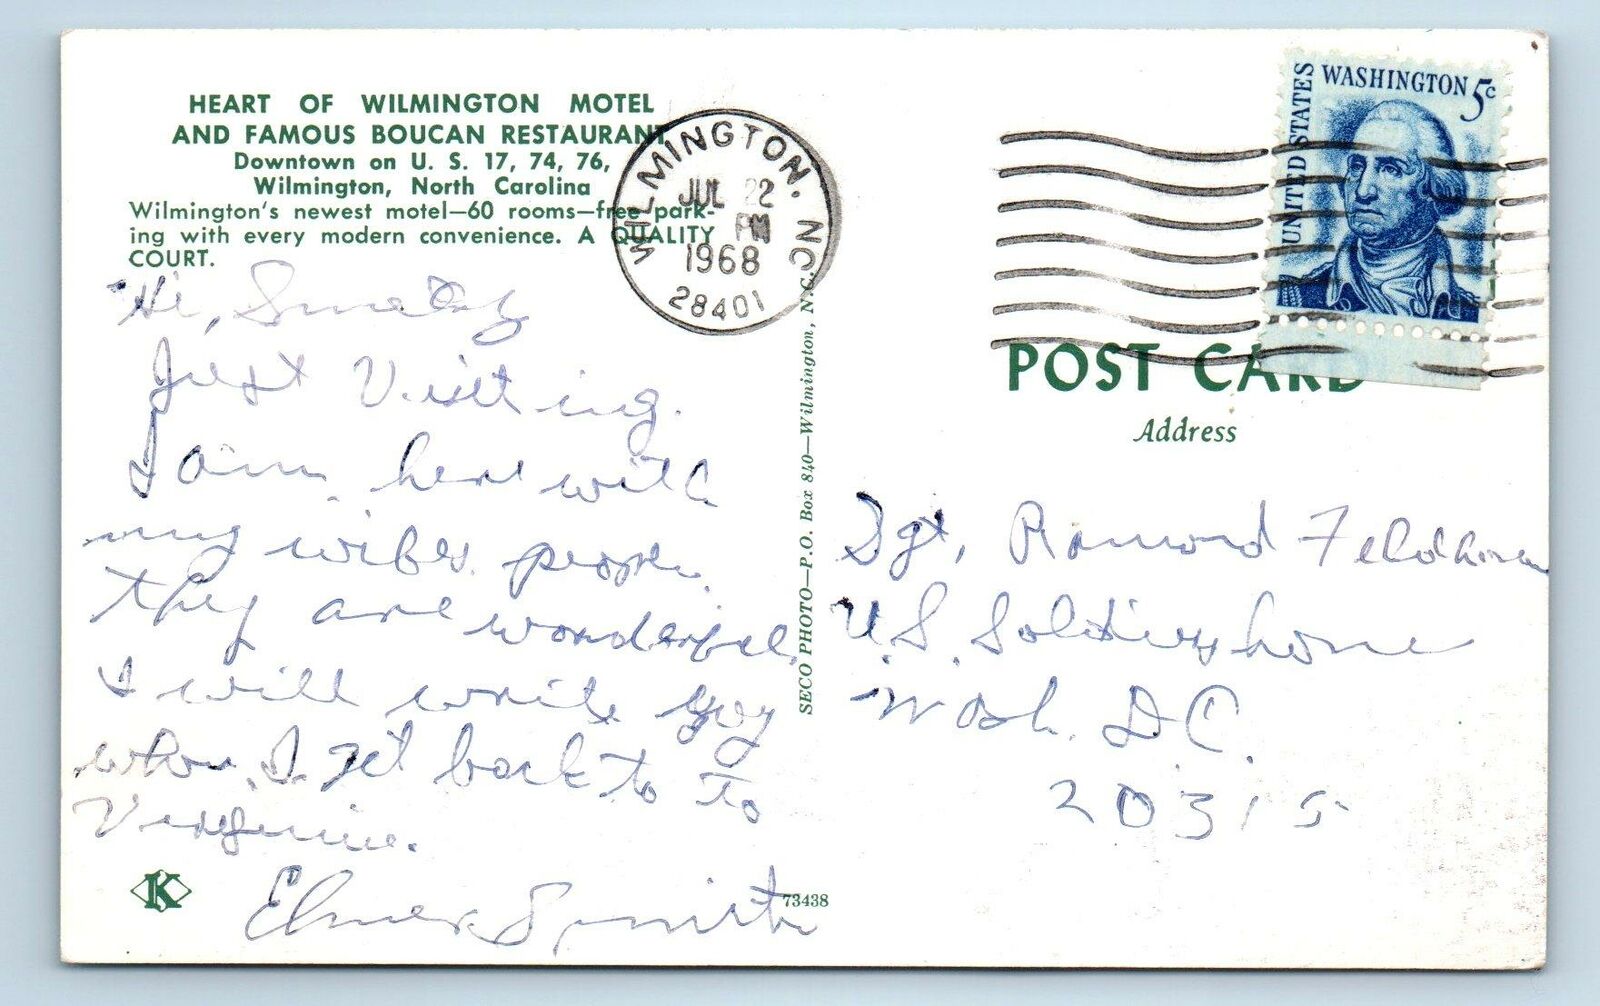 HEART OF WILMINGTON MOTEL
AND FAMOUS BOUCAN RESTAURANT
Downtown on U. S. 17, 74, 76,
Wilmington, North Carolina
Wilmington's newest motel—60 rooms—free park-
ing with every modern convenience. A QUALITY
COURT.
Hi,
Just Visiting.
I am here with
my wifes people.
they are wonderful.
I will write you
when I get back to To
Virginia.
Elmer Smith
K
73438
SECO PHOTO—P.O. Box 840—Wilmington, N.C.
WILMINGTON, NC
JUL 22
PM
1968
28401
UNITED STATES
WASHINGTON 5c
POST CARD
Address
Sgt. Raymond Feldman
U.S. Soldiers home
Wash. D.C.
20315